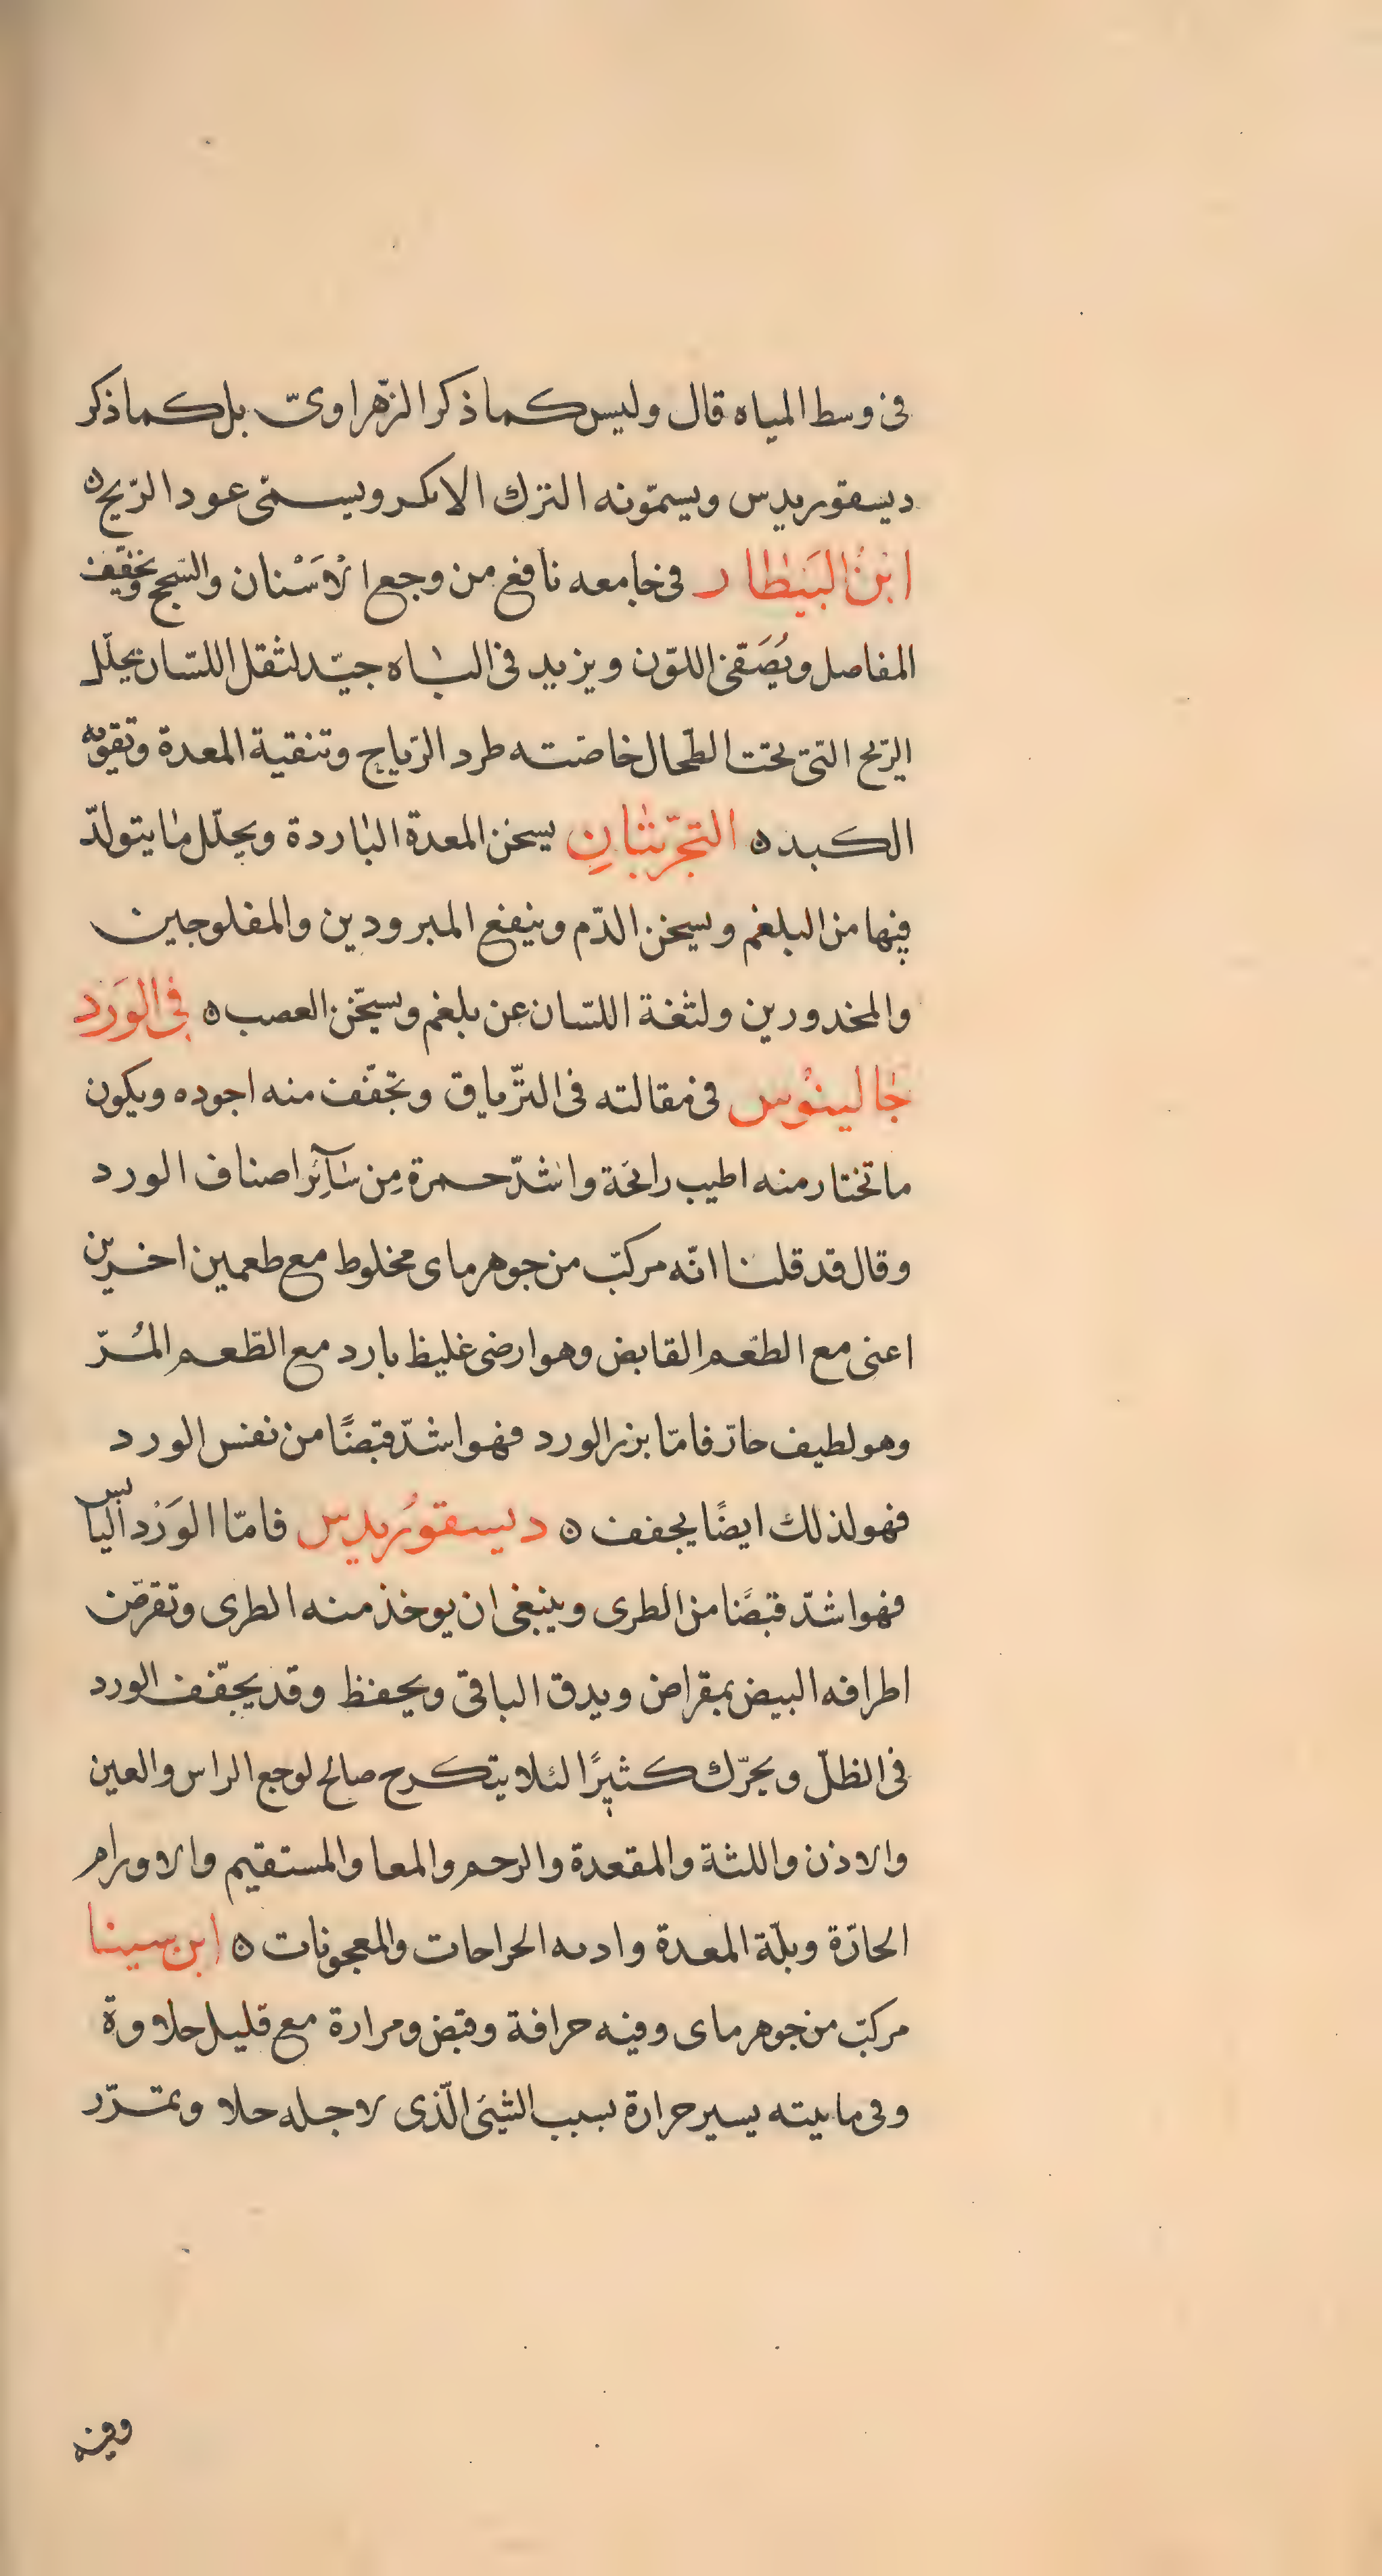 فى وسط المياه قال وليس كما ذكر الزّهراوىّ بل كما ذكر
ديسقوريدس ويسمّونه الترك الاىكر ويسمّى عود الرّيح ه
ابنُ البَيطار فى جامعه نافع من وجع الْاَسْنان والسّحج وتخفّيف
المفاصل ويُصَفّى اللوّن ويزيد فى الباه جيّد لثقل اللسّان يحلّل
الرّيح التّى تحت الطّحال خاصّته طرد الرّياح وتنقية المعدة وتقويه
الكبد ه التجرّبتانِ يسخن المعدة الباردة ويحلّل ما يتولدّ
فيها من البلغم ويسخن الدّم وينفع المبرودين والمفلوجين
والمخدورين ولثغة اللسّان عن بلغم ويسخّن العصب ه فى الوَرد
جالينوْس فى مقالته فى الترّياق وتجفّف منه اجوده ويكون
ما تختار منه اطيب رائحة واشدّ حمرة مِن سآئر اصناف الورد
وقال قد قلنا انّه مركبّ من جوهر ماى مخلوط مع طعمين اخرين
اعنى مع الطّعم القابض وهو ارضى غليظ بارد مع الطّعم المُرّ
وهو لطيف حارّ فامّا بزر الورد فهو اشدّ قبضًا من نفس الورد
فهو لذلك ايضًا يجفف ه ديسقوُريدس فامّا الوَرْد اليابس
فهو اشدّ قبضًا من الطرى وينبغى ان يوخذ منه الطرى وتقرّض
اطرافه البيض بمقراض ويدق الباقى ويحفظ وقد يجفّف الورد
فى الظلّ ويحرّك كثيرًا لئلا يتكرح صالح لوجع الراس والعين
والاذن واللثة والمقعدة والرحم والمعا والمستقيم والاورام
الحارّة وبلّة المعدة وادىه الجراحات والمعجونات ه ابن سينا
مركبّ من جوهر ماى وفيه حرافة وقبض ومرارة مع قليل حلاوة
وفى مايته يسير حرارة بسبب الشّئ الّذى لاجله حلا وتمرّر
وفيه